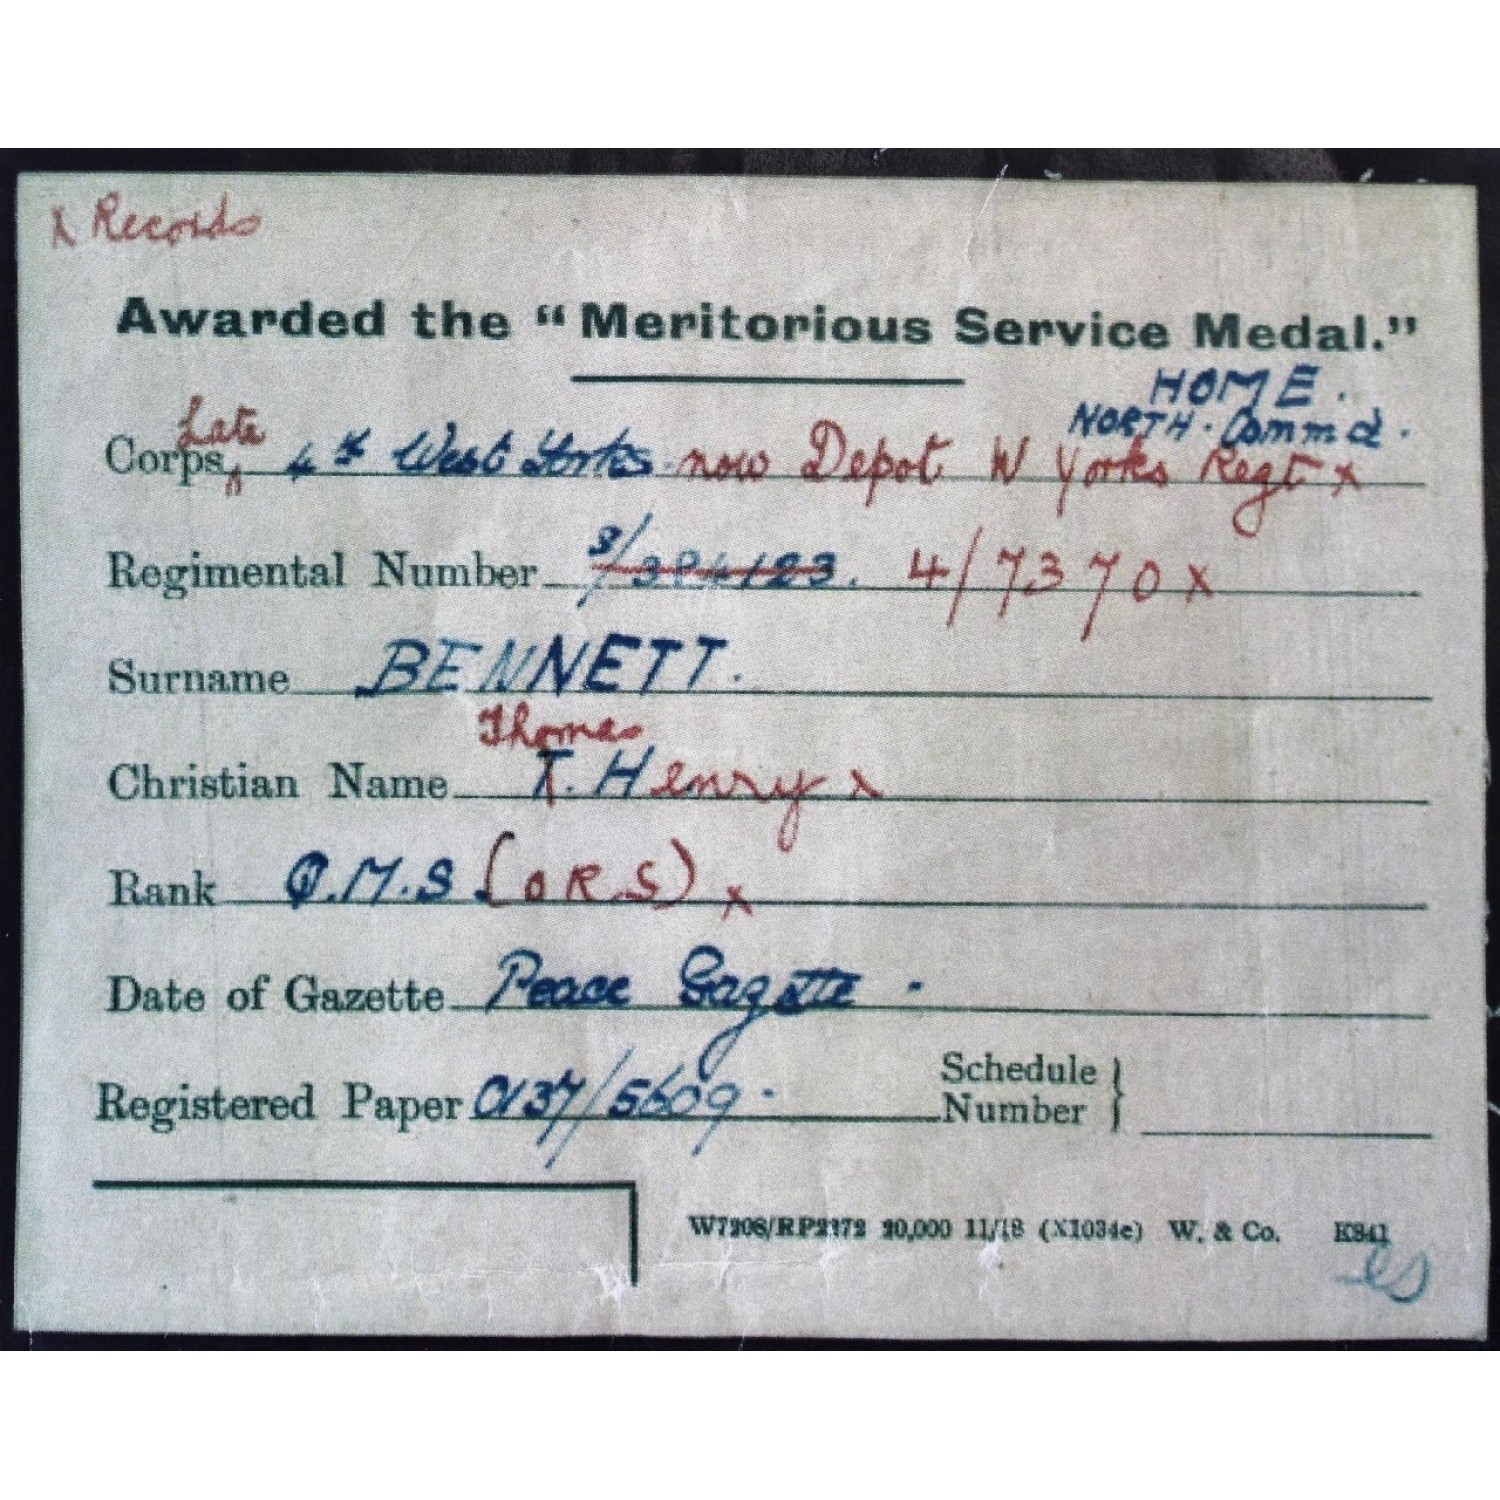 x Records
Awarded the "Meritorious Service Medal."
HOME.
NORTH. Commd.
Corps Late 4th West Yorks. now Depot W Yorks Regt x
Regimental Number 3/384123. 4/7370 x
Surname BENNETT.
Thomas
Christian Name T. Henry x
Rank Q.M.S. (O R.S) x
Date of Gazette Peace Gazette.
Registered Paper 0137/5609. Schedule Number }
W7206/RP2372 20,000 11/18 (X1034c) W. & Co. K841